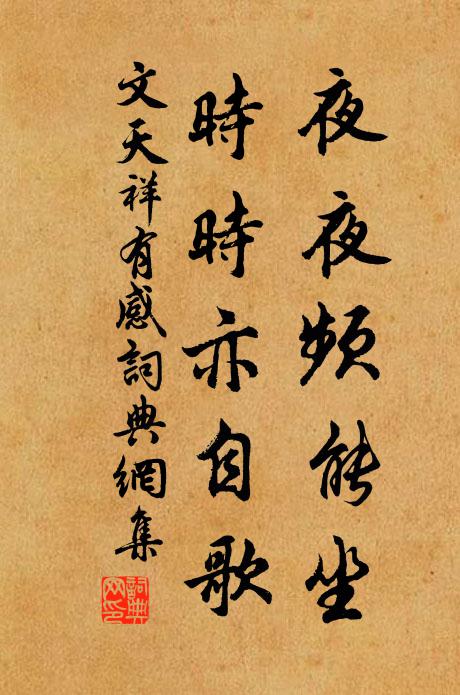 夜夜频能坐
時時亦自歌
文天祥有感詞典網集
詞典网印